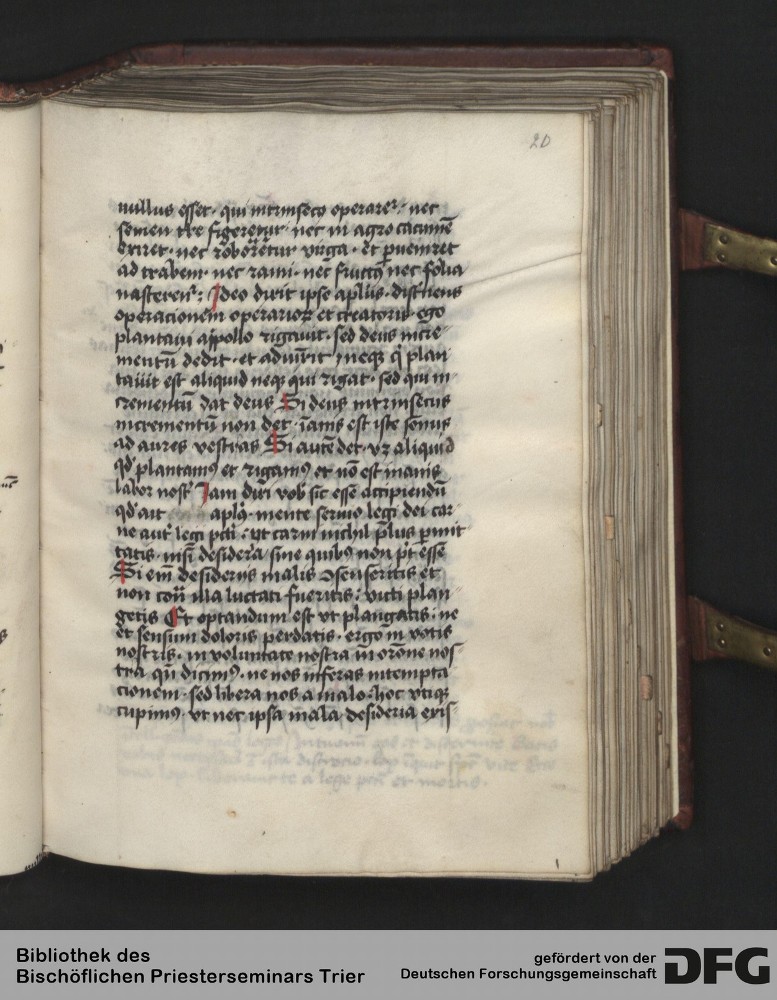 20
nullus esset · qui intrinseco operaret᷑ · nec
semen t̄re figeretur · nec in agro cacumē
exiret · nec roboretur virga · et ꝑueniret
ad trabem · nec rami · nec fructꝰ nec folia
nasceren᷑ : Ideo dixit ipse apl̄us · distīens
operacionem operarioꝝ et creatoris · ego
plantaui appollo rigauit · sed deus incre
mentū dedit · et adiūxit neqꝫ qͥ plan
tauit est aliquid neqꝫ qui rigat · sed qui in
crementū dat deus Si deus intrinsecus
incrementū non det · īanis est iste sonus
ad aures vestras Si autē det · vꝫ aliquid
qd̓ plantamꝰ et rigamꝰ et nō est inanis
labor nost᷑ Iam dixi vob̄ sic esse accipiendū
qd̓ ait aplꝰ · mente seruio legi dei car
ne aut᷑ legi pcti · ut carni nichil pl̄us ꝑmit
tatis · nisi desideria sine quibꝰ non pt̄ esse
Si em̄ desideriis malis ɔsenseritis et
non cont᷑ illa luctati fueritis : victi plan
getis Et optandum est vt plangatis : ne
et sensum doloris perdatis · ergo in votis
nostris · in voluntate nostra in orōne nos
tra qn̄ dicimꝰ · ne nos inferas intempta
cionem · sed libera nos a malo · hoc vtiqꝫ
cupimꝰ · vt nec ipsa mala desideria exis
Bibliothek des
Bischöflichen Priesterseminars Trier
gefördert von der
Deutschen Forschungsgemeinschaft
DFG